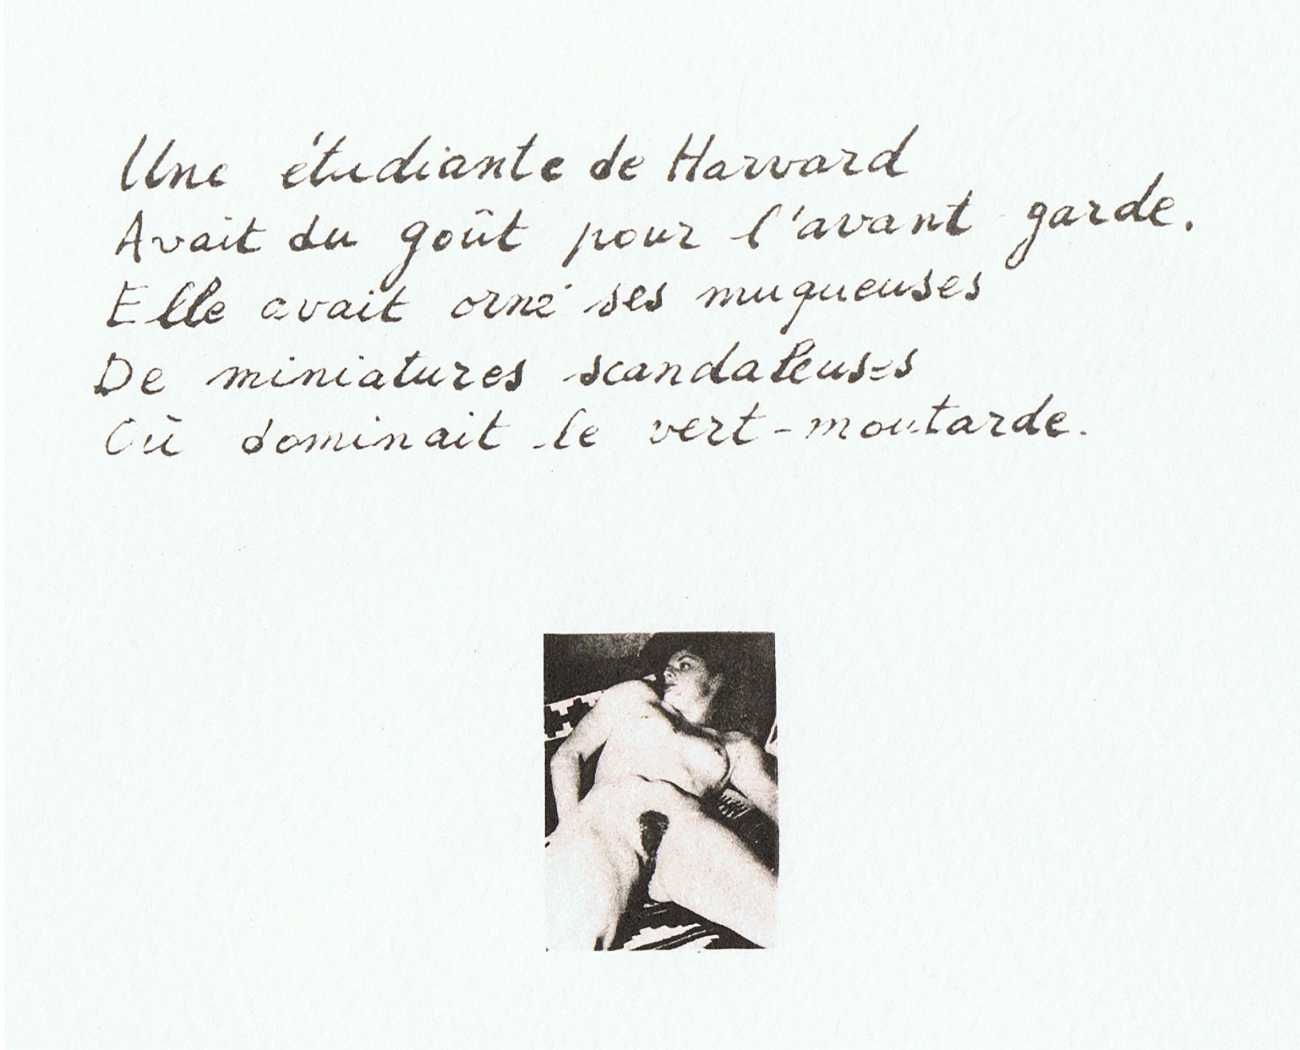 Une étudiante de Harvard
Avait du goût pour l'avant garde.
Elle avait orné ses muqueuses
De miniatures scandaleuses
Où dominait le vert-moutarde.